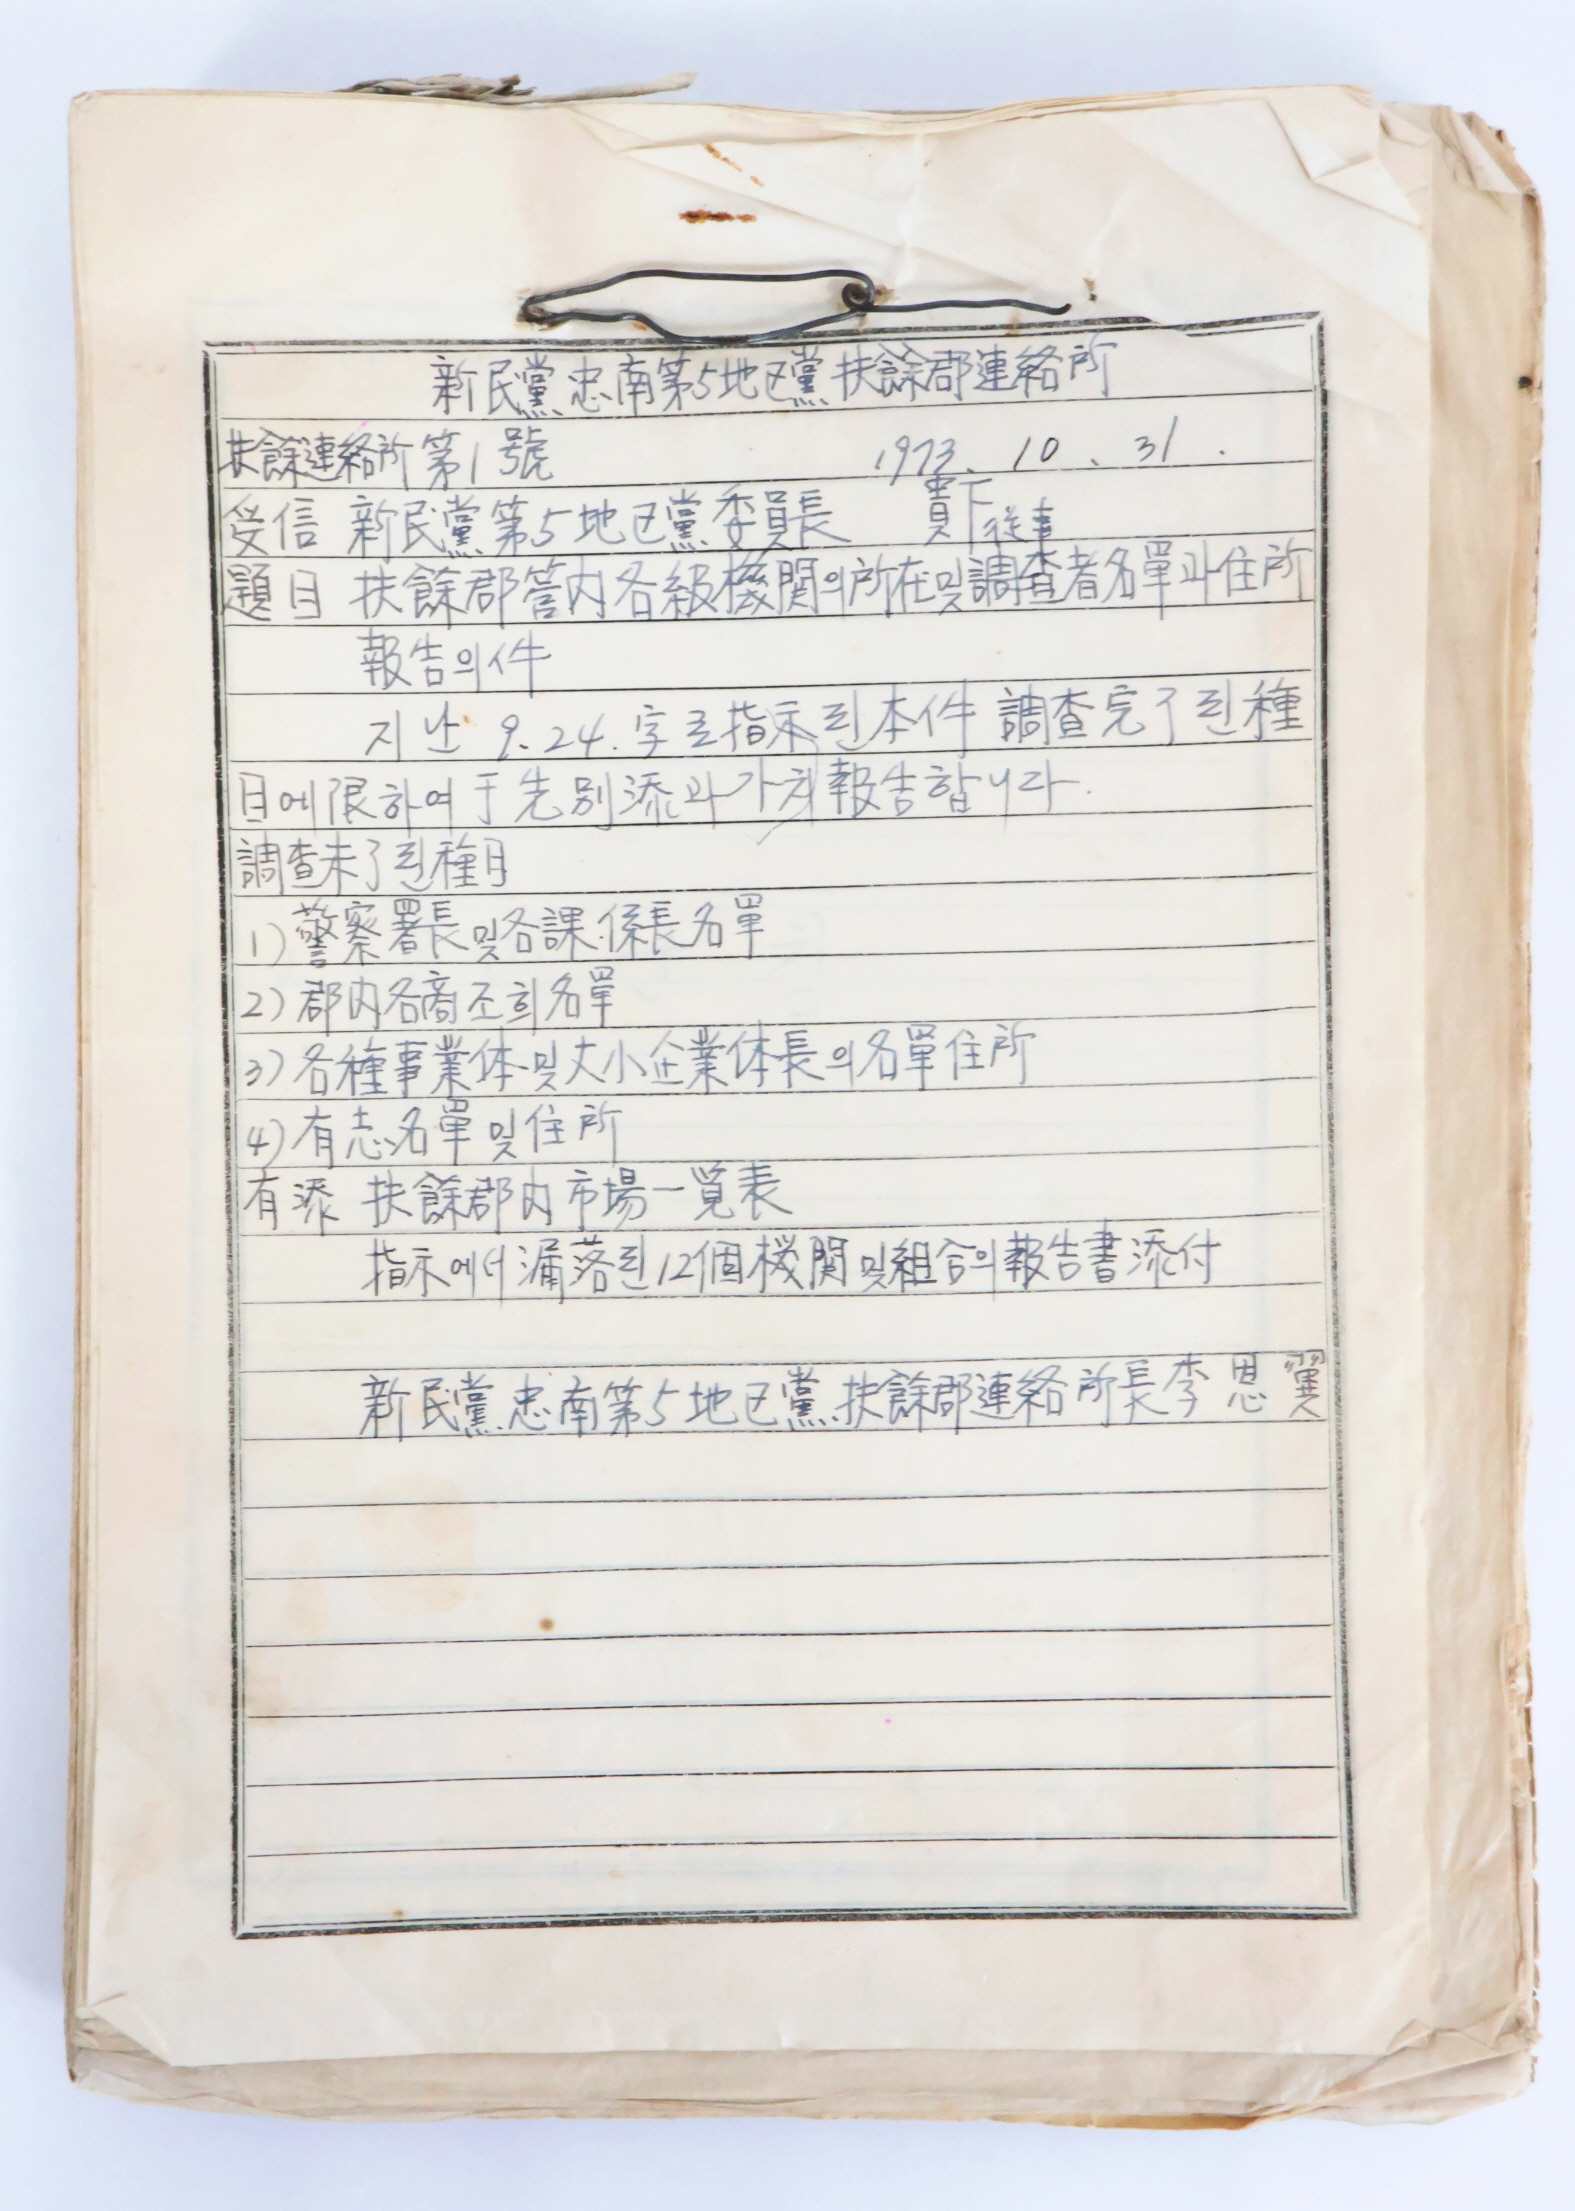 新民黨忠南第5地区黨扶餘郡連絡所
扶餘連絡所第1號 1973. 10. 31.
受信 新民黨第5地区黨委員長 貴下
従事
題目 扶餘郡管内各級機関의所在및調査者名單과住所
報告의件
지난 9.24.字로指示된本件 調査完了된種
目에限하여于先別添과가치報告합니다.
調査未了된種目
1) 警察署長및各課.係長名單
2) 郡内各商조희名單
3) 各種事業体및大小企業体長의名單住所
4) 有志名單및住所
有添 扶餘郡内市場一覧表
指示에서漏落된12個機関및組合의報告書添付
新民黨忠南第5地区黨扶餘郡連絡所長李恩翼